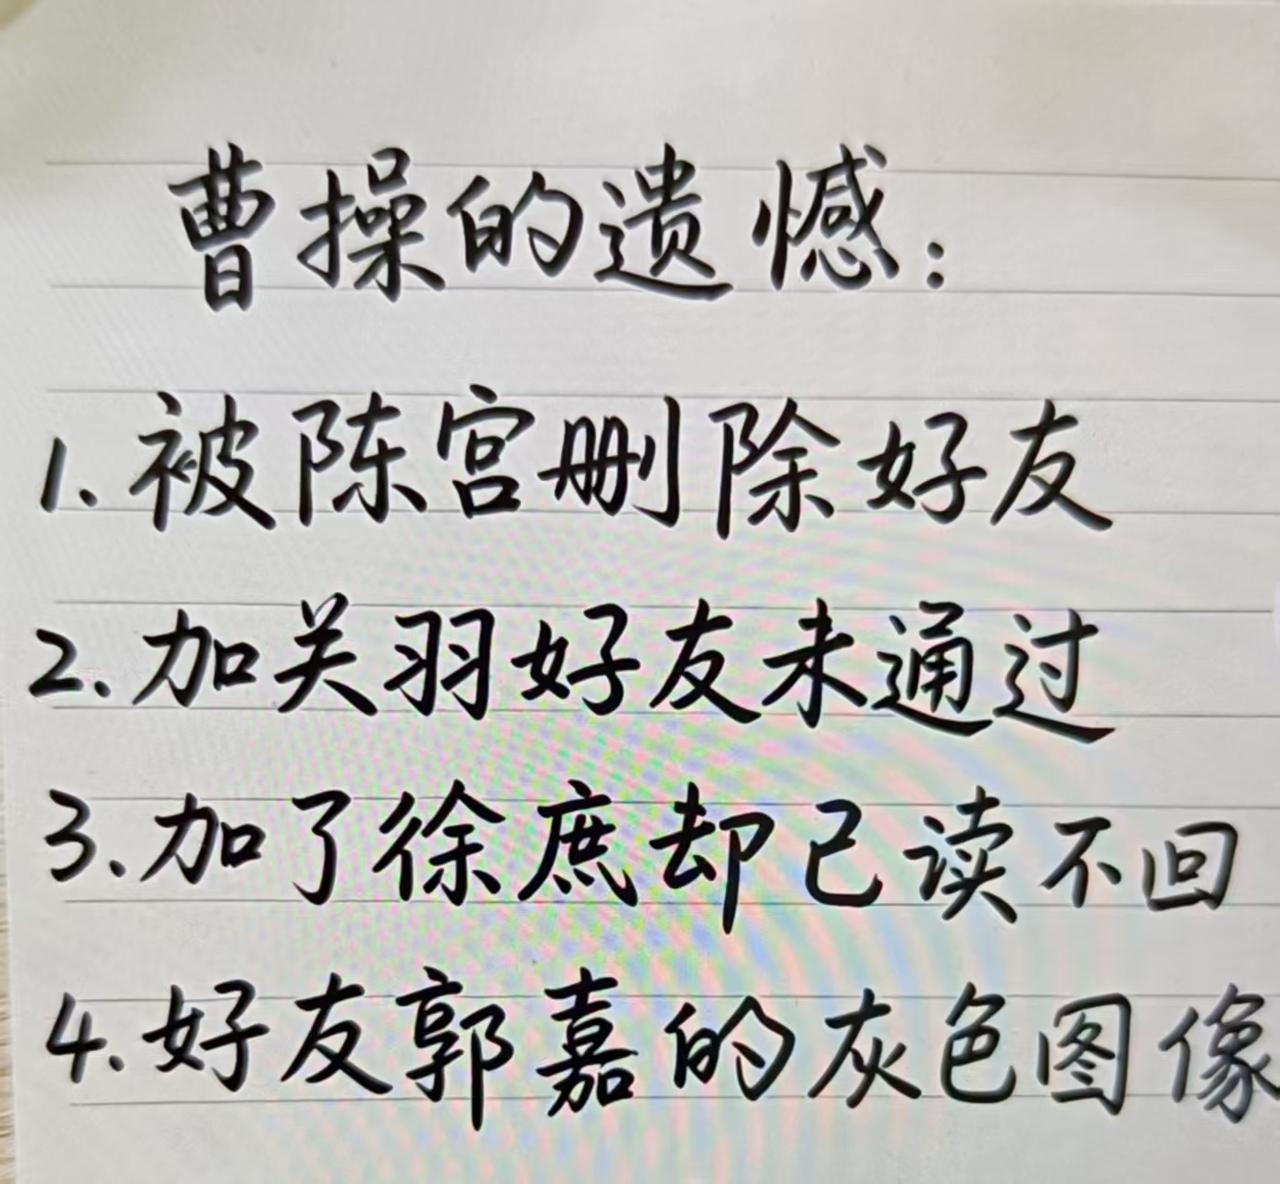 曹操的遗憾：
1.被陈宫删除好友
2.加关羽好友未通过
3.加了徐庶却已读不回
4.好友郭嘉的灰色图像